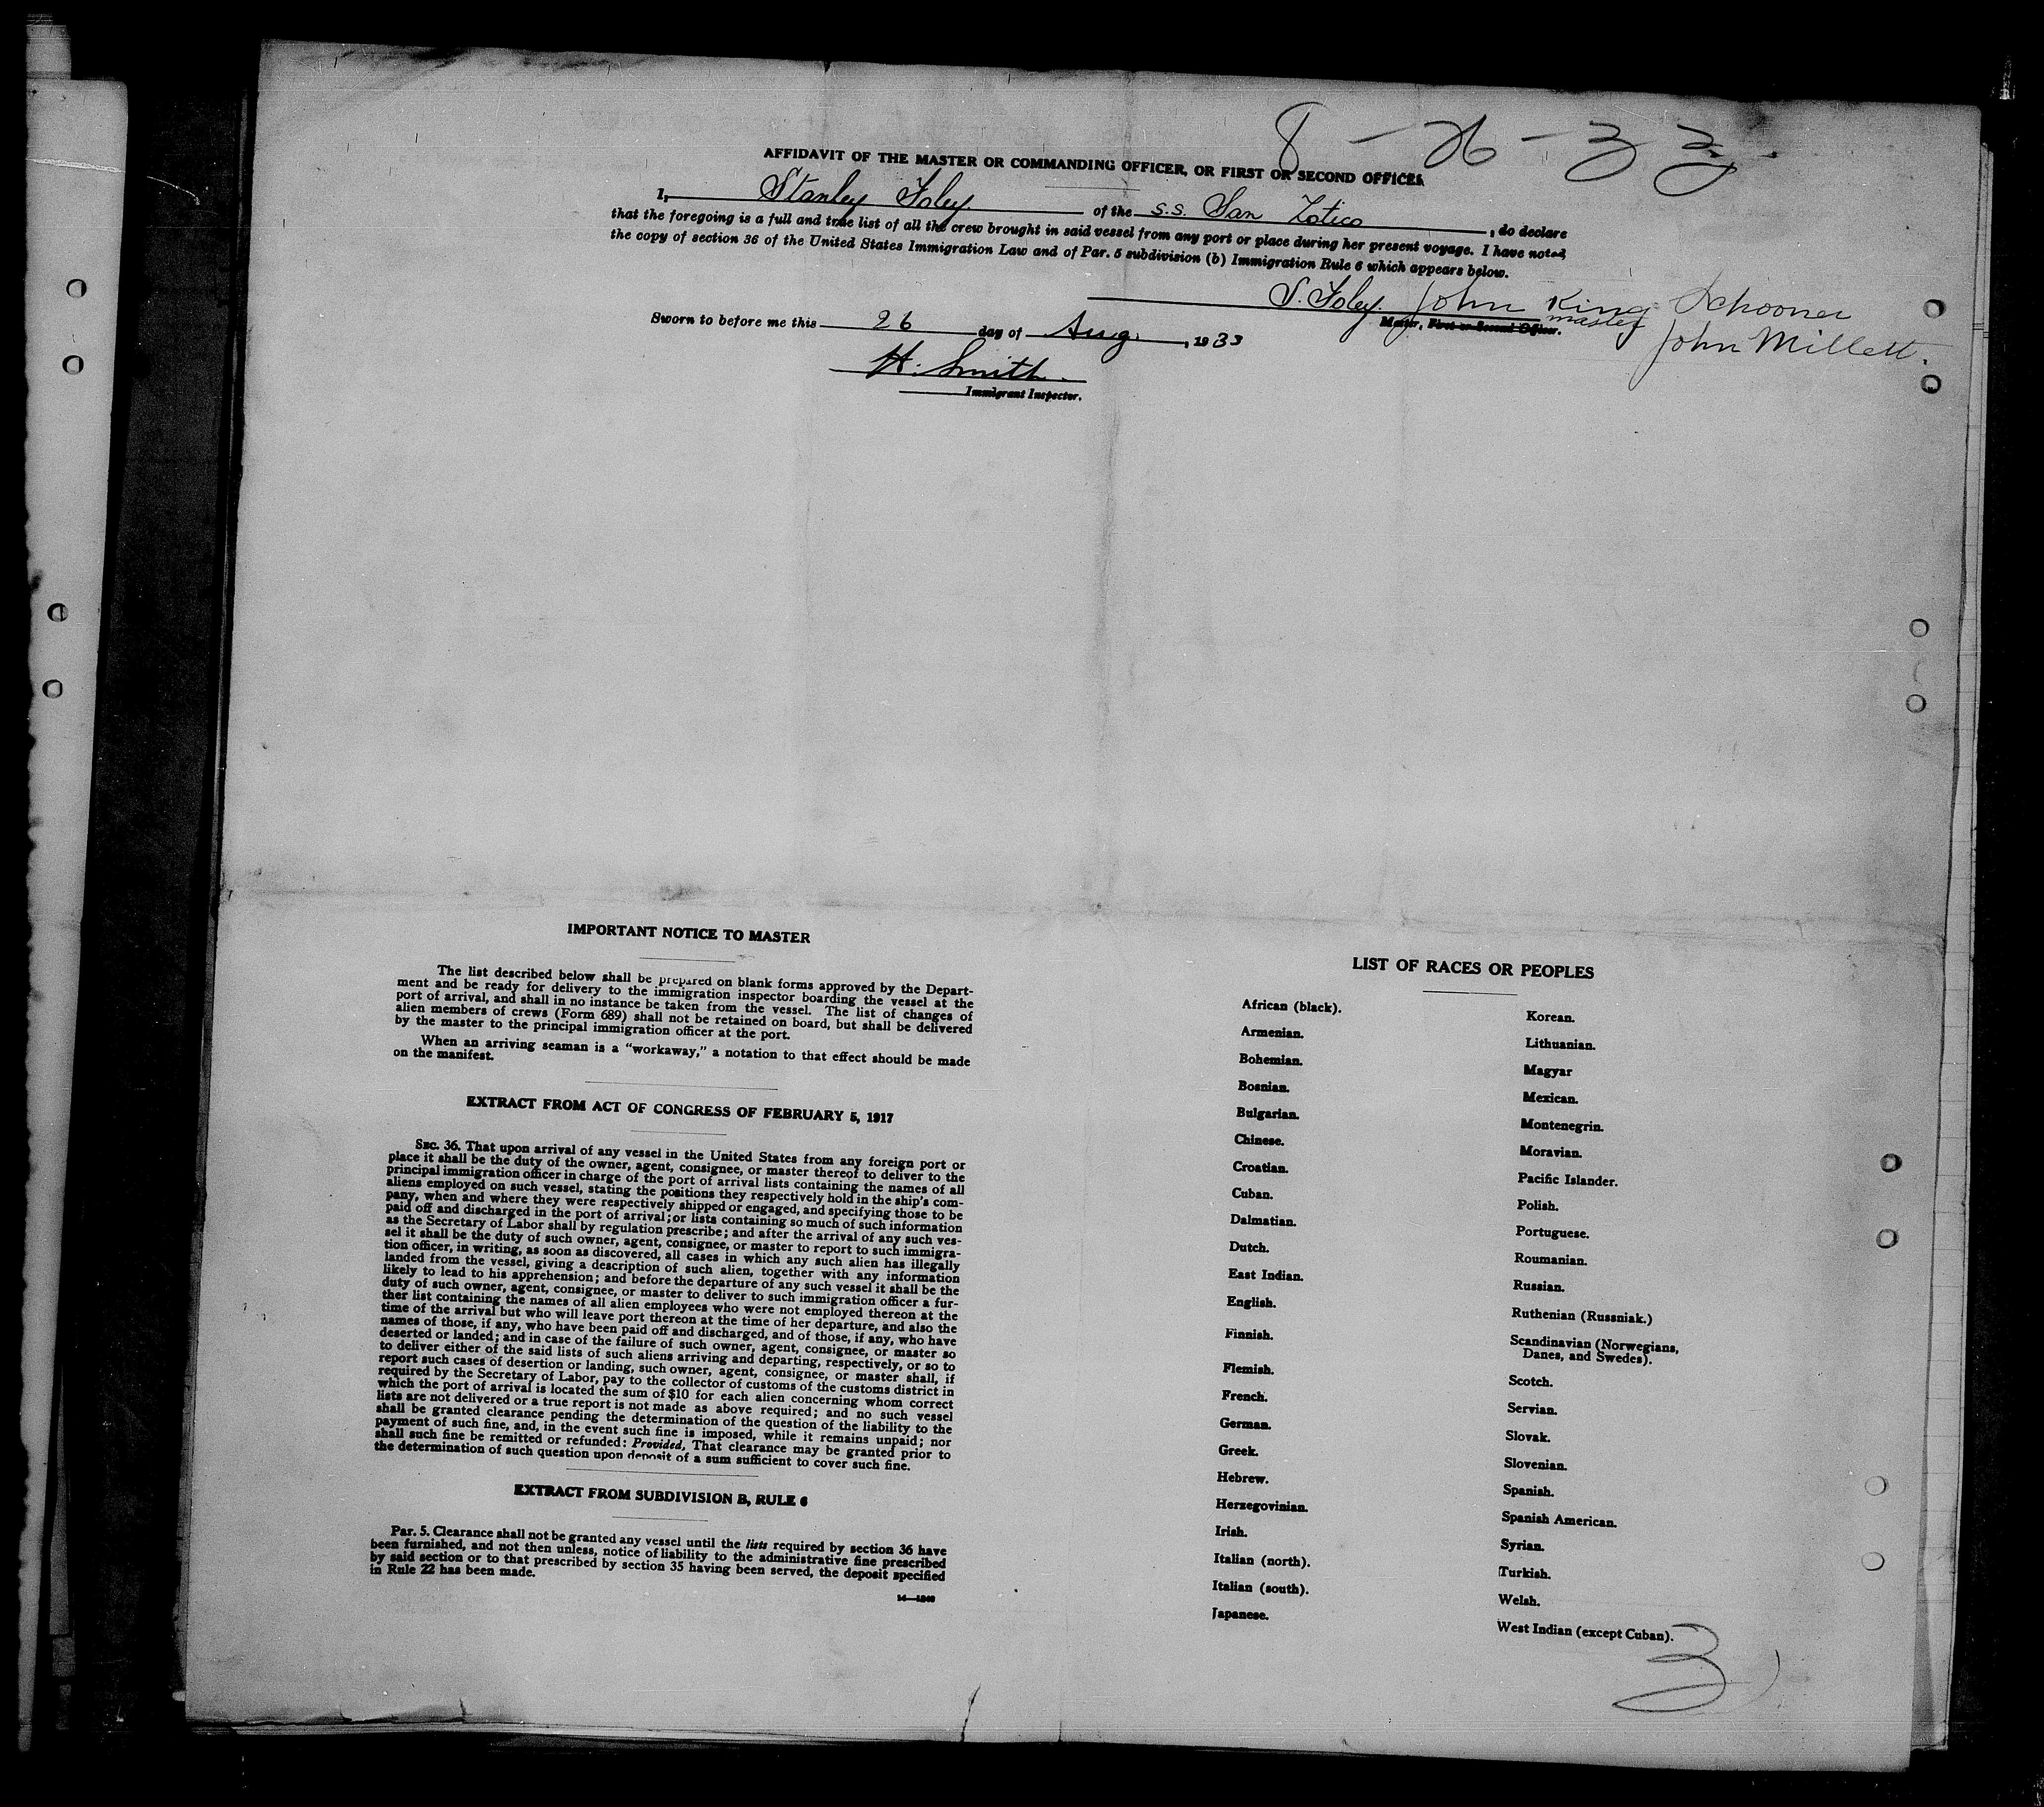 8-26-33
AFFIDAVIT OF THE MASTER OR COMMANDING OFFICER, OR FIRST OR SECOND OFFICER
I, Stanley Foley of the S.S. San Zotico, do declare
that the foregoing is a full and true list of all the crew brought in said vessel from any port or place during her present voyage. I have noted
the copy of section 36 of the United States Immigration Law and of Par. 5 subdivision (b) Immigration Rule 6 which appears below.
S. Foley. John King Schooner
master John Millett.
Master, First or Second Officer.
Sworn to before me this 26 day of Aug., 1933
H. Smith.
Immigrant Inspector.
IMPORTANT NOTICE TO MASTER
The list described below shall be prepared on blank forms approved by the Depart-
ment and be ready for delivery to the immigration inspector boarding the vessel at the
port of arrival, and shall in no instance be taken from the vessel. The list of changes of
alien members of crews (Form 689) shall not be retained on board, but shall be delivered
by the master to the principal immigration officer at the port.
When an arriving seaman is a "workaway," a notation to that effect should be made
on the manifest.
EXTRACT FROM ACT OF CONGRESS OF FEBRUARY 5, 1917
SEC. 36. That upon arrival of any vessel in the United States from any foreign port or
place it shall be the duty of the owner, agent, consignee, or master thereof to deliver to the
principal immigration officer in charge of the port of arrival lists containing the names of all
aliens employed on such vessel, stating the positions they respectively hold in the ship's com-
pany, when and where they were respectively shipped or engaged, and specifying those to be
paid off and discharged in the port of arrival; or lists containing so much of such information
as the Secretary of Labor shall by regulation prescribe; and after the arrival of any such ves-
sel it shall be the duty of such owner, agent, consignee, or master to report to such immigra-
tion officer, in writing, as soon as discovered, all cases in which any such alien has illegally
landed from the vessel, giving a description of such alien, together with any information
likely to lead to his apprehension; and before the departure of any such vessel it shall be the
duty of such owner, agent, consignee, or master to deliver to such immigration officer a fur-
ther list containing the names of all alien employees who were not employed thereon at the
time of the arrival but who will leave port thereon at the time of her departure, and also the
names of those, if any, who have been paid off and discharged, and of those, if any, who have
deserted or landed; and in case of the failure of such owner, agent, consignee, or master so
to deliver either of the said lists of such aliens arriving and departing, respectively, or so to
report such cases of desertion or landing, such owner, agent, consignee, or master shall, if
required by the Secretary of Labor, pay to the collector of customs of the customs district in
which the port of arrival is located the sum of $10 for each alien concerning whom correct
lists are not delivered or a true report is not made as above required; and no such vessel
shall be granted clearance pending the determination of the question of the liability to the
payment of such fine, and, in the event such fine is imposed, while it remains unpaid; nor
shall such fine be remitted or refunded: Provided, That clearance may be granted prior to
the determination of such question upon deposit of a sum sufficient to cover such fine.
EXTRACT FROM SUBDIVISION B, RULE 6
Par. 5. Clearance shall not be granted any vessel until the lists required by section 36 have
been furnished, and not then unless, notice of liability to the administrative fine prescribed
by said section or to that prescribed by section 35 having been served, the deposit specified
in Rule 22 has been made.
LIST OF RACES OR PEOPLES
African (black).
Armenian.
Bohemian.
Bosnian.
Bulgarian.
Chinese.
Croatian.
Cuban.
Dalmatian.
Dutch.
East Indian.
English.
Finnish.
Flemish.
French.
German.
Greek.
Hebrew.
Herzegovinian.
Irish.
Italian (north).
Italian (south).
Japanese.
Korean.
Lithuanian.
Magyar
Mexican.
Montenegrin.
Moravian.
Pacific Islander.
Polish.
Portuguese.
Roumanian.
Russian.
Ruthenian (Russniak.)
Scandinavian (Norwegians,
Danes, and Swedes).
Scotch.
Servian.
Slovak.
Slovenian.
Spanish.
Spanish American.
Syrian.
Turkish.
Welsh.
West Indian (except Cuban).
3